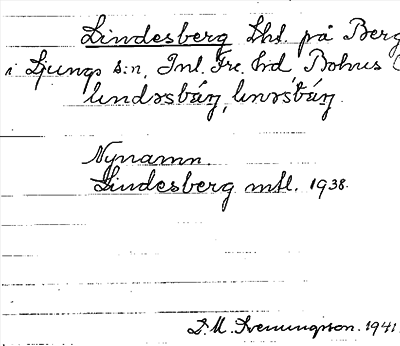 Lindesberg Lht. på Berg
i Ljungs s:n, Inl. Fre. hd, Bohus
lındəsbáŋ, lınəsbáŋ.
Nynamn.
Lindesberg mtl. 1938.
D. M. Svenungsson. 1941